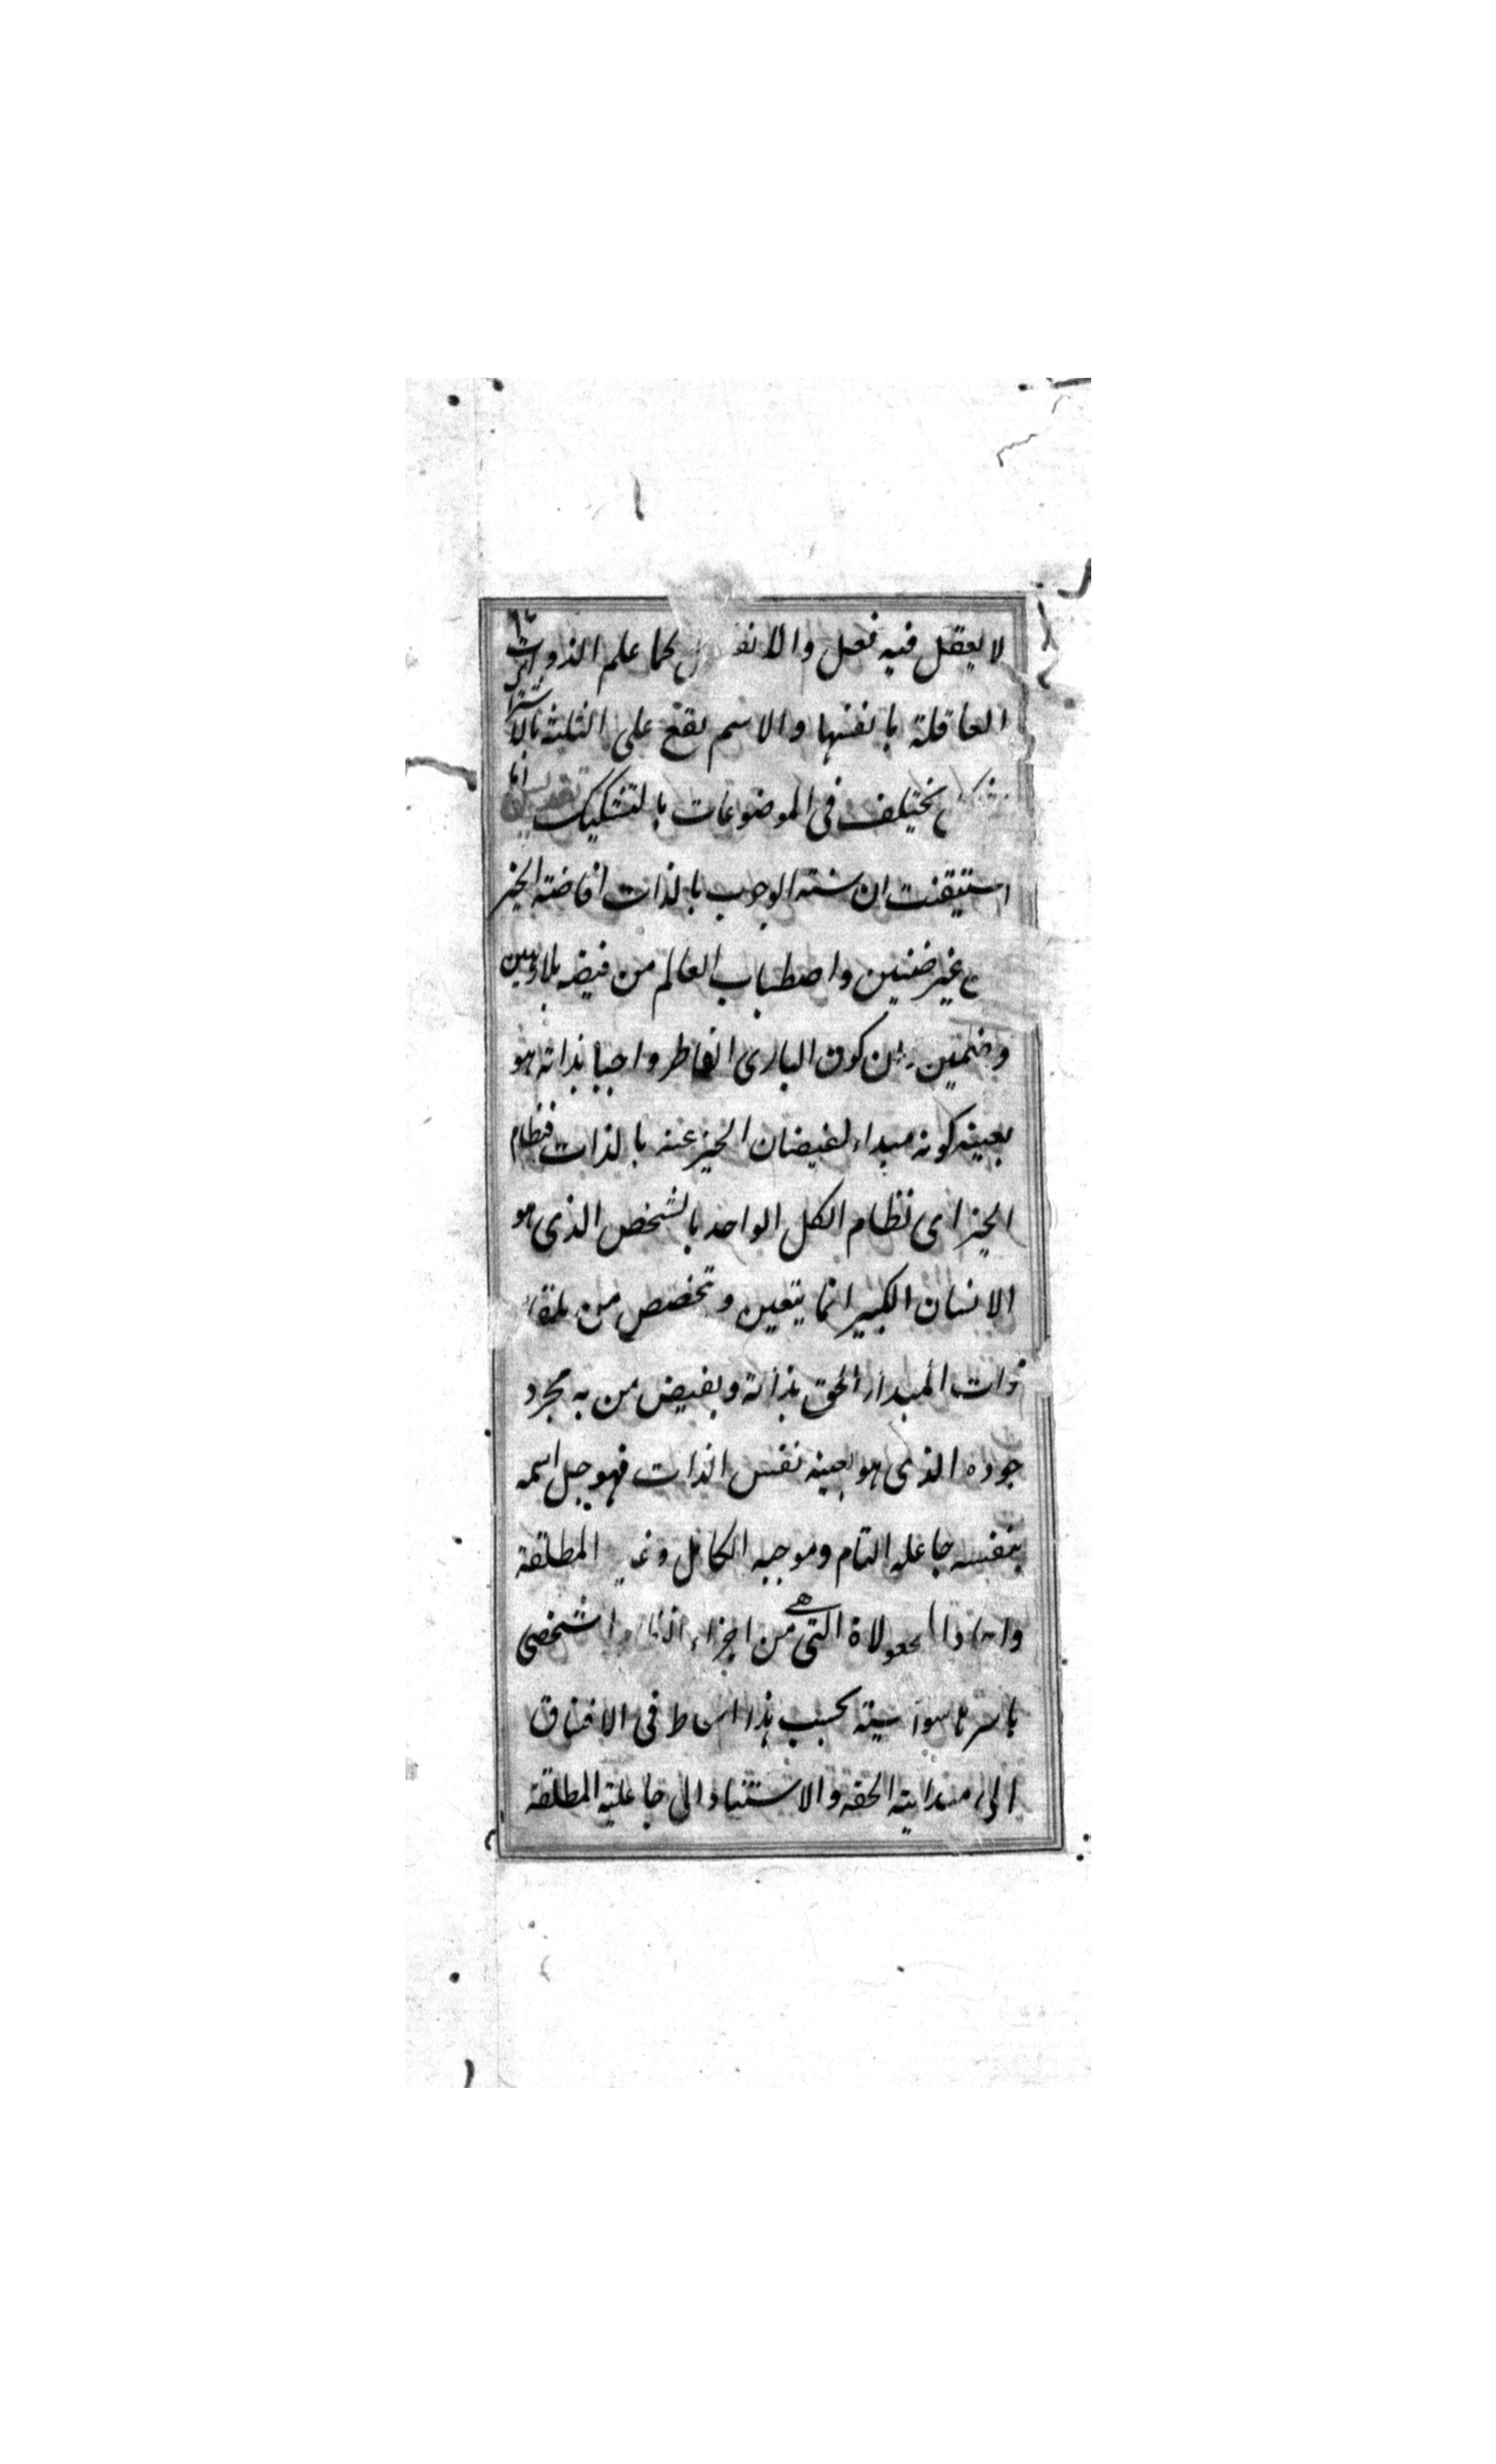 لا يعقل فيه فعل والانفعال كما علم الذوات
العاقلة بانفسها والاسم يقع على الثلثة بالاشتراك
يختلف فى الموضوعات بالتشكيك
استيقنت ان سنته الوجوب بالذات افاضته الخير
غير ضنين واصطباب العالم من فيضه بلا
وضمين كون البارى الفاطر واجبا بذاته هو
بعينه كونه مبداء لفيضان الخير عنه بالذات فنظام
الخير اى نظام الكل الواحد بالشخص الذى هو
الانسان الكبير انما يتعين و تخصص من تلقاء
ذات المبداء الحق بذاته ويفيض من به مجرد
جوده الذى هو بعينه نفس الذات فهو جل اسمه
بنفسه جاعله التام وموجبه الكامل و المطلقة
التى هى من اجزاء الشخصى
سواسية بحسب هذا فى الافتاق
الى مبدايته الحقه والاستناد الى جاعليته المطلقة